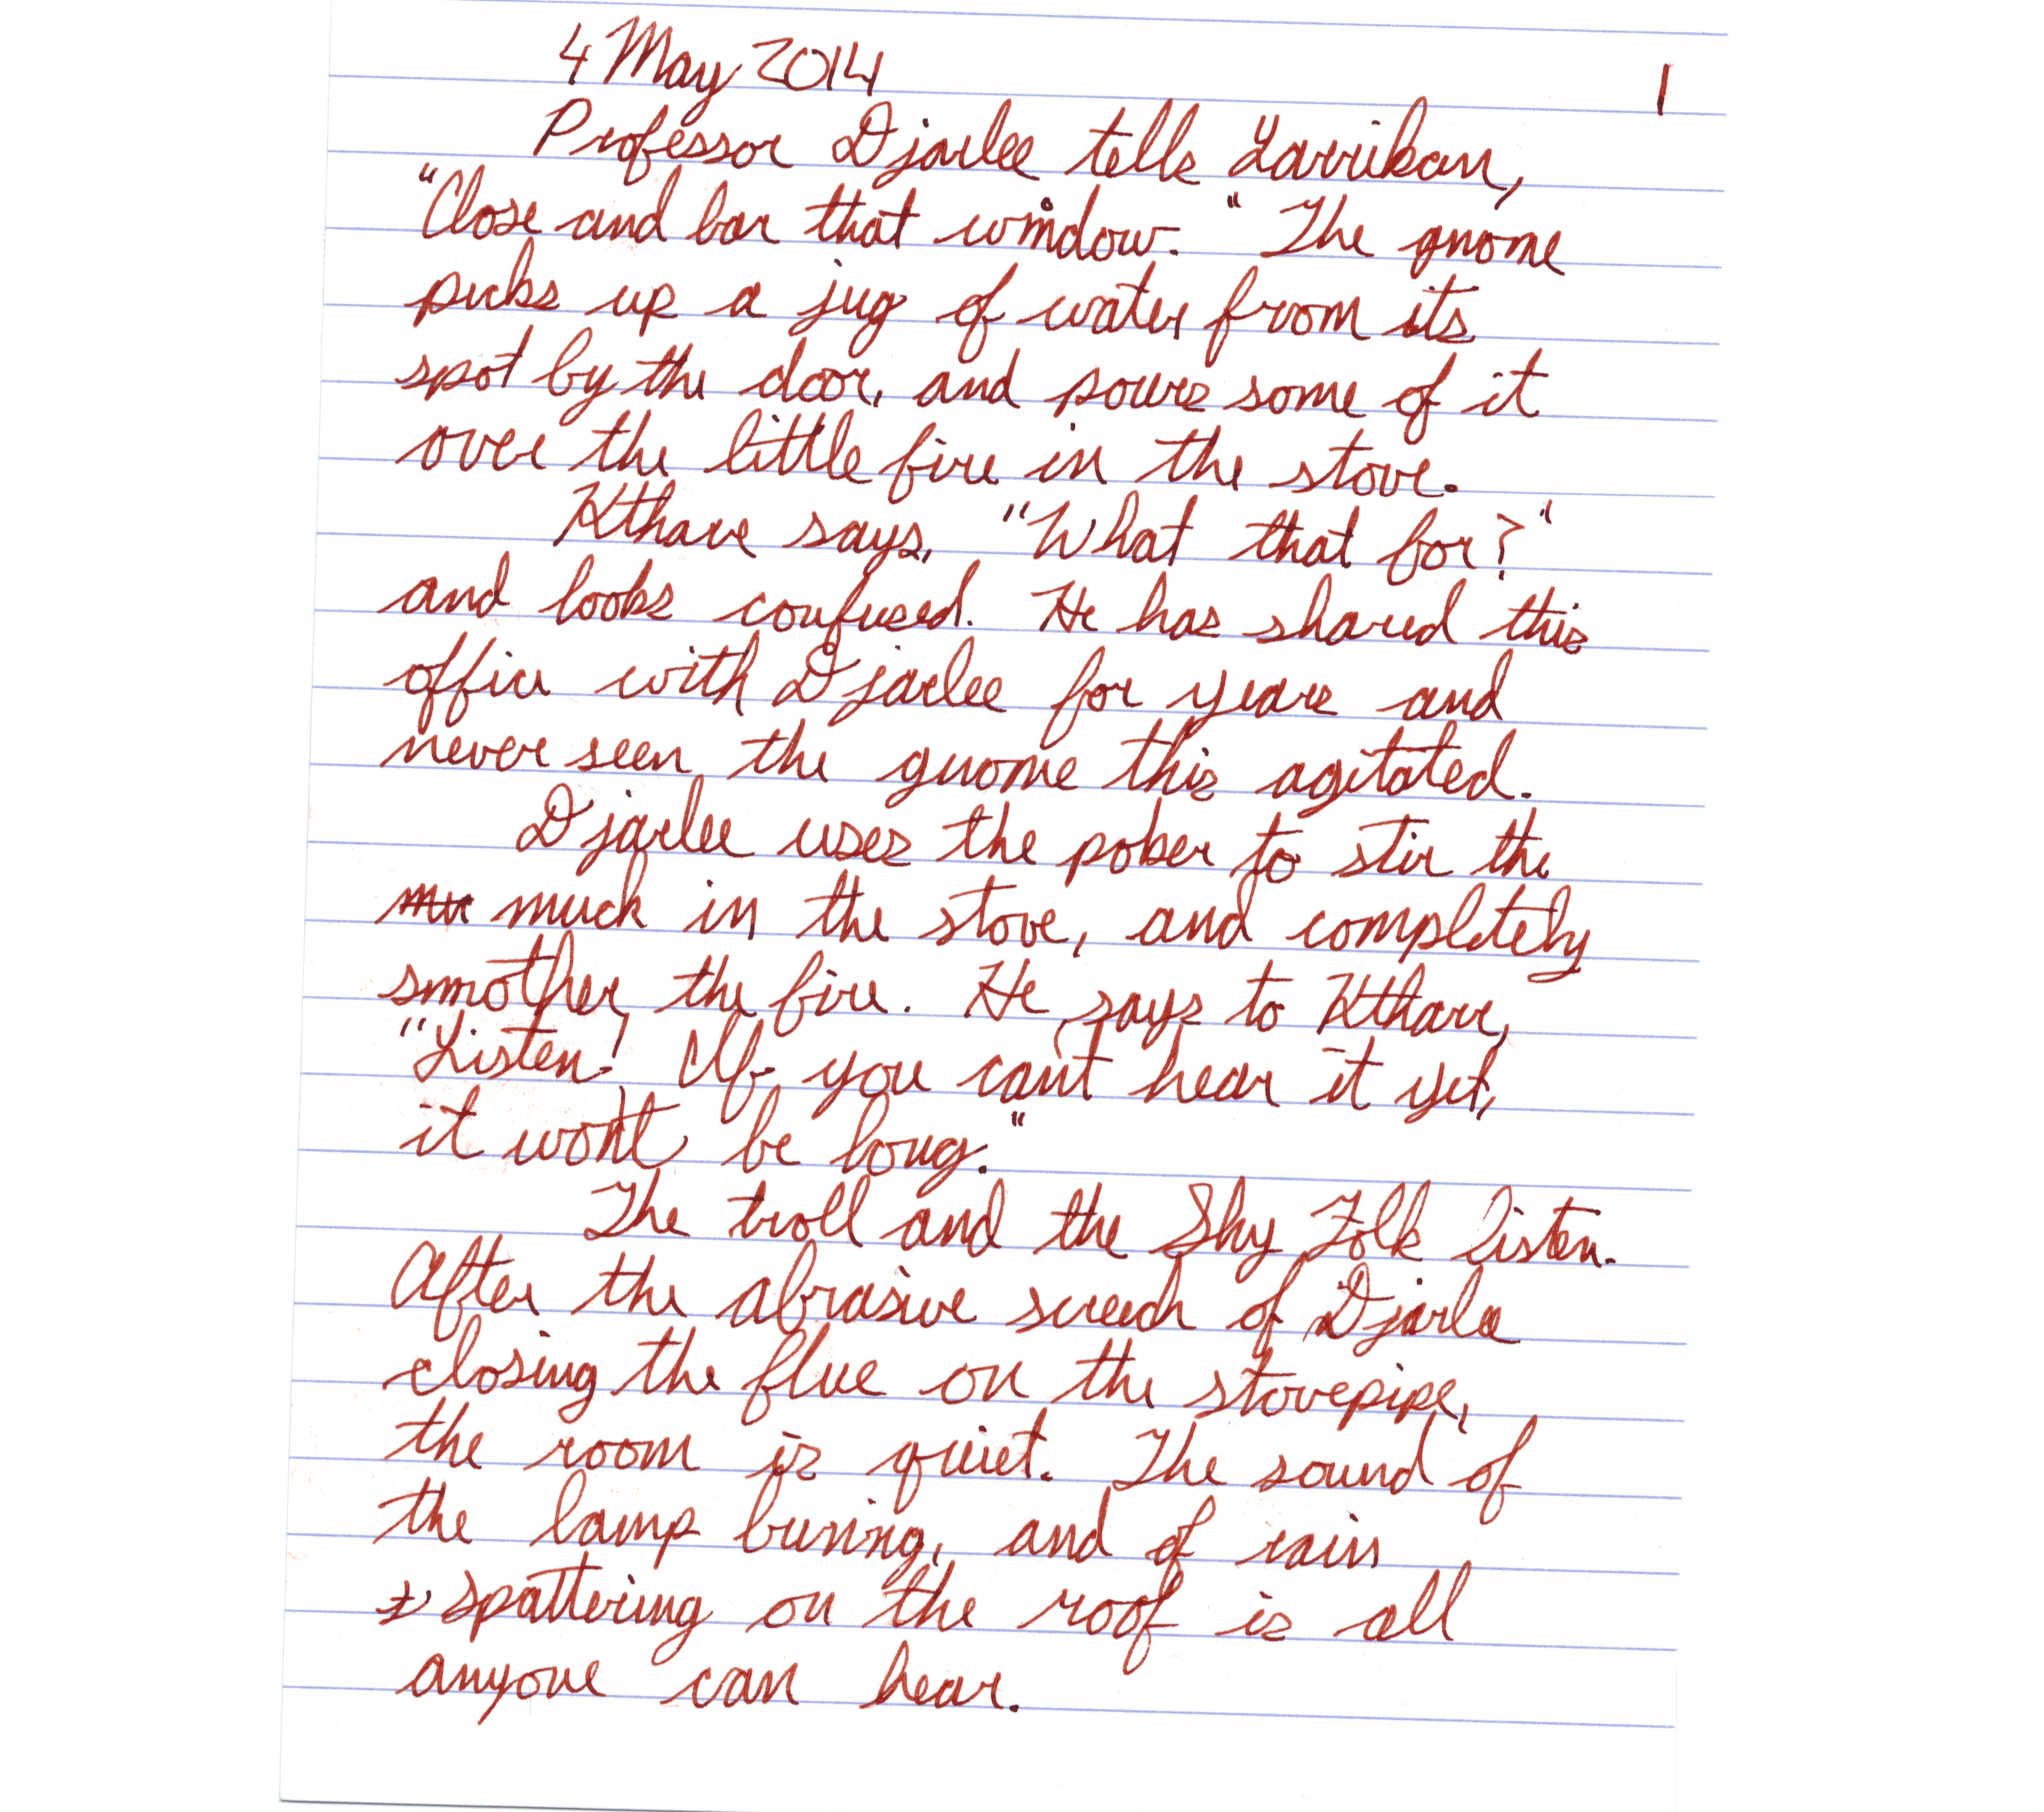 4 May 2014
1
Professor Djarlee tells Yarrikan,
"Close and bar that window." The gnome
picks up a jug of water from its
spot by the door, and pours some of it
over the little fire in the stove.
Kthare says, "What that for?"
and looks confused. He has shared this
office with Djarlee for years and
never seen the gnome this agitated.
Djarlee uses the poker to stir the
muck in the stove, and completely
smother the fire. He says to Kthare,
"Listen! If you can't hear it yet,
it won't be long."
The troll and the Shy Folk listen.
After the abrasive screech of Djarlee
closing the flue on the stovepipe,
the room is quiet. The sound of
the lamp burning, and of rain
spattering on the roof is all
anyone can hear.